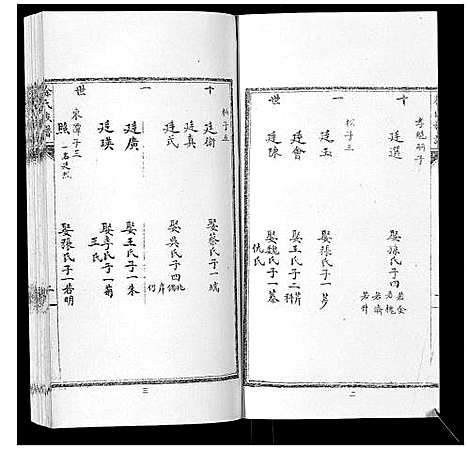 十一世
孝曉嗣子
廷選 娶孫氏子四 若金 若槐 若濟 若升
松子三
廷玉 娶張氏子一 芳
廷會 娶王氏子二 芹 科
廷陳 娶魏氏子一 蓁 仇氏
二
十一世
柏子五
廷衛 娶蔡氏子一 瑞
廷真
廷民 娶吳氏子四
廷廣 娶王氏子一 朱
廷瑛 娶李氏子一 菊 王氏
東潭子三
照 一名廷烈 娶張氏子一 若明
三
氏族譜